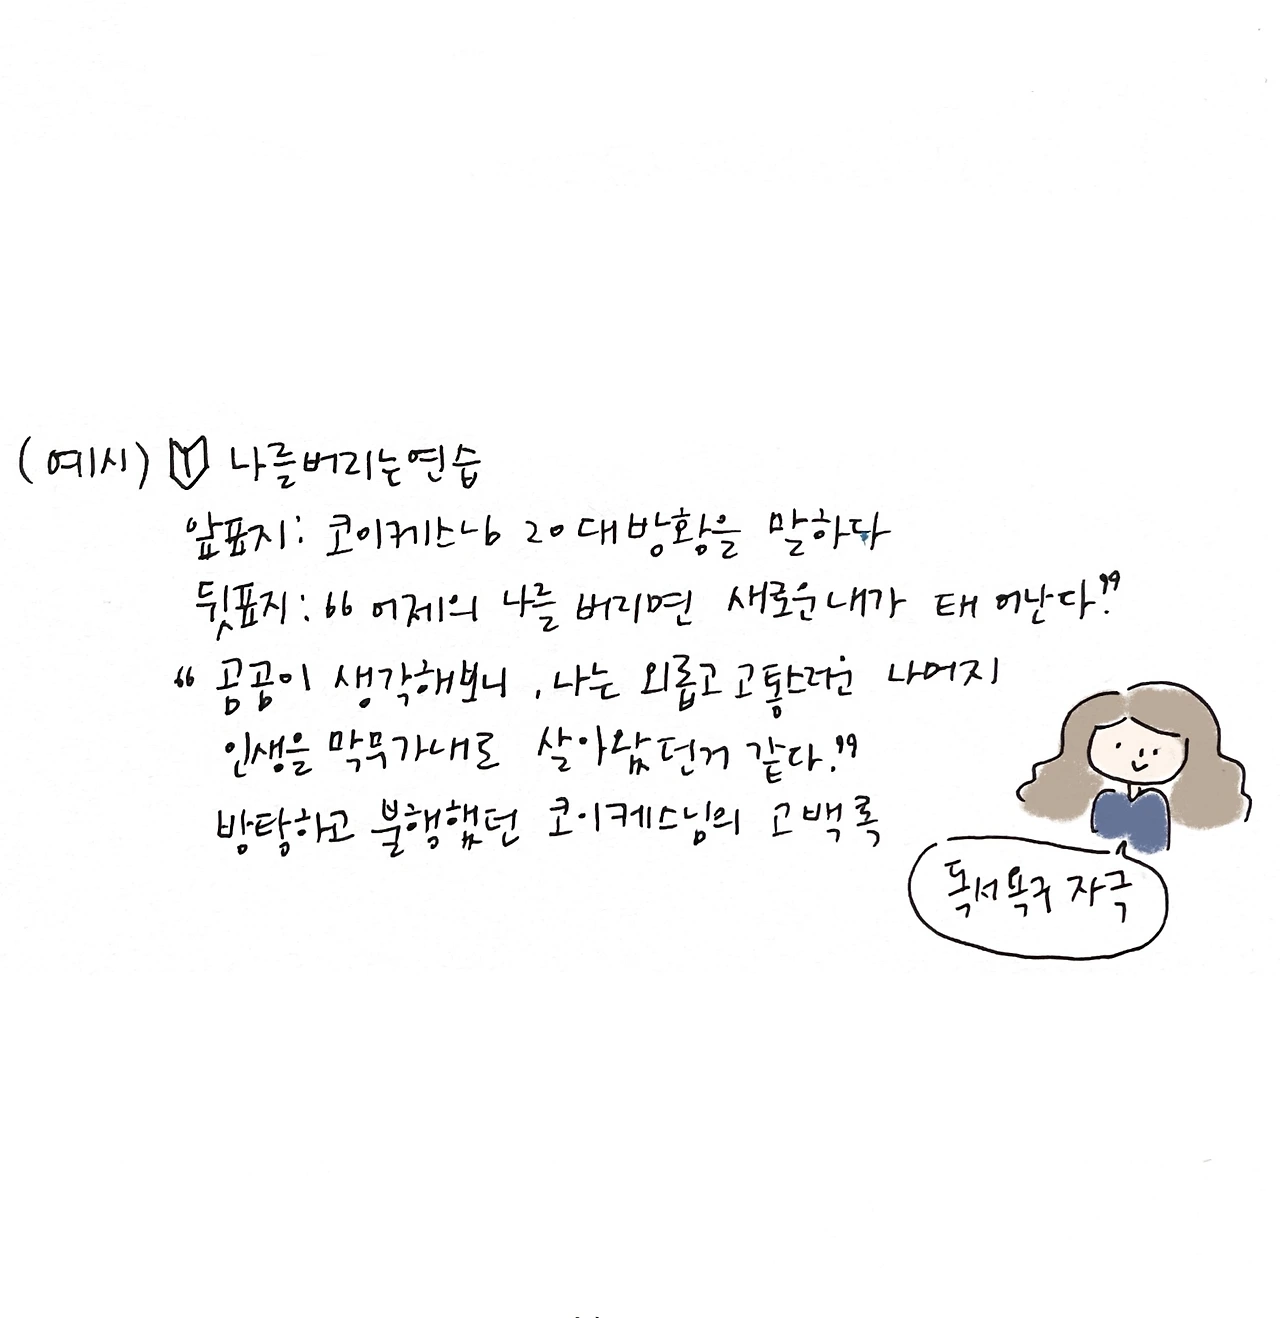 (예시) 나를버리는연습
앞표지: 코이케스님 20대방황을 말하다
뒷표지: "어제의 나를 버리면 새로운내가 태어난다."
"곰곰이 생각해보니, 나는 외롭고 고통스러운 나머지
인생을 막무가내로 살아왔던거 같다."
방탕하고 불행했던 코이케스님의 고백록
독서욕구 자극